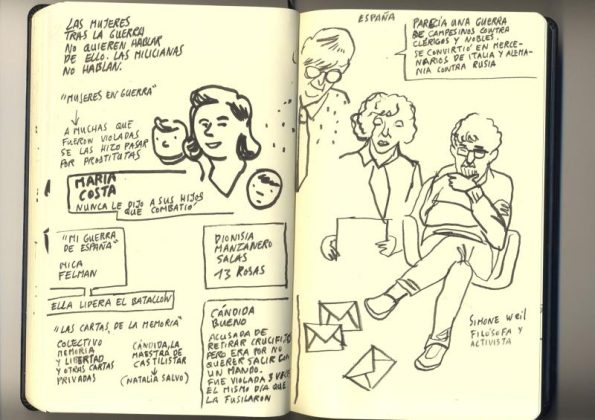 LAS MUJERES
TRAS LA GUERRA
NO QUIEREN HABLAR
DE ELLO. LAS MILICIANAS
NO HABLAN.
"MUJERES EN GUERRA"
A MUCHAS QUE
FUERON VIOLADAS
SE LAS HIZO PASAR
POR PROSTITUTAS
MARIA
COSTA
NUNCA LE DIJO A SUS HIJOS
QUE COMBATIÓ
"MI GUERRA
DE ESPAÑA"
MICA
FELMAN
ELLA LIDERA EL BATALLÓN
"LAS CARTAS DE LA MEMORIA"
COLECTIVO
MEMORIA
Y LIBERTAD
Y OTRAS CARTAS
PRIVADAS
CÁNDIDA, LA
MAESTRA DE
CASTILISTAR
(NATALIA SALVO)
DIONISIA
MANZANERO
SALAS
13 ROSAS
CÁNDIDA
BUENO
ACUSADA DE
RETIRAR CRUCIFIJO
PERO ERA POR NO
QUERER SALIR CON
UN MANDO.
FUE VIOLADA 3 VECES
EL MISMO DÍA QUE
LA FUSILARON
ESPAÑA
PARECÍA UNA GUERRA
DE CAMPESINOS CONTRA
CLÉRIGOS Y NOBLES.
SE CONVIRTIÓ EN MERCE-
NARIOS DE ITALIA Y ALEMA-
NIA CONTRA RUSIA
SIMONE WEIL
FILÓSOFA Y
ACTIVISTA